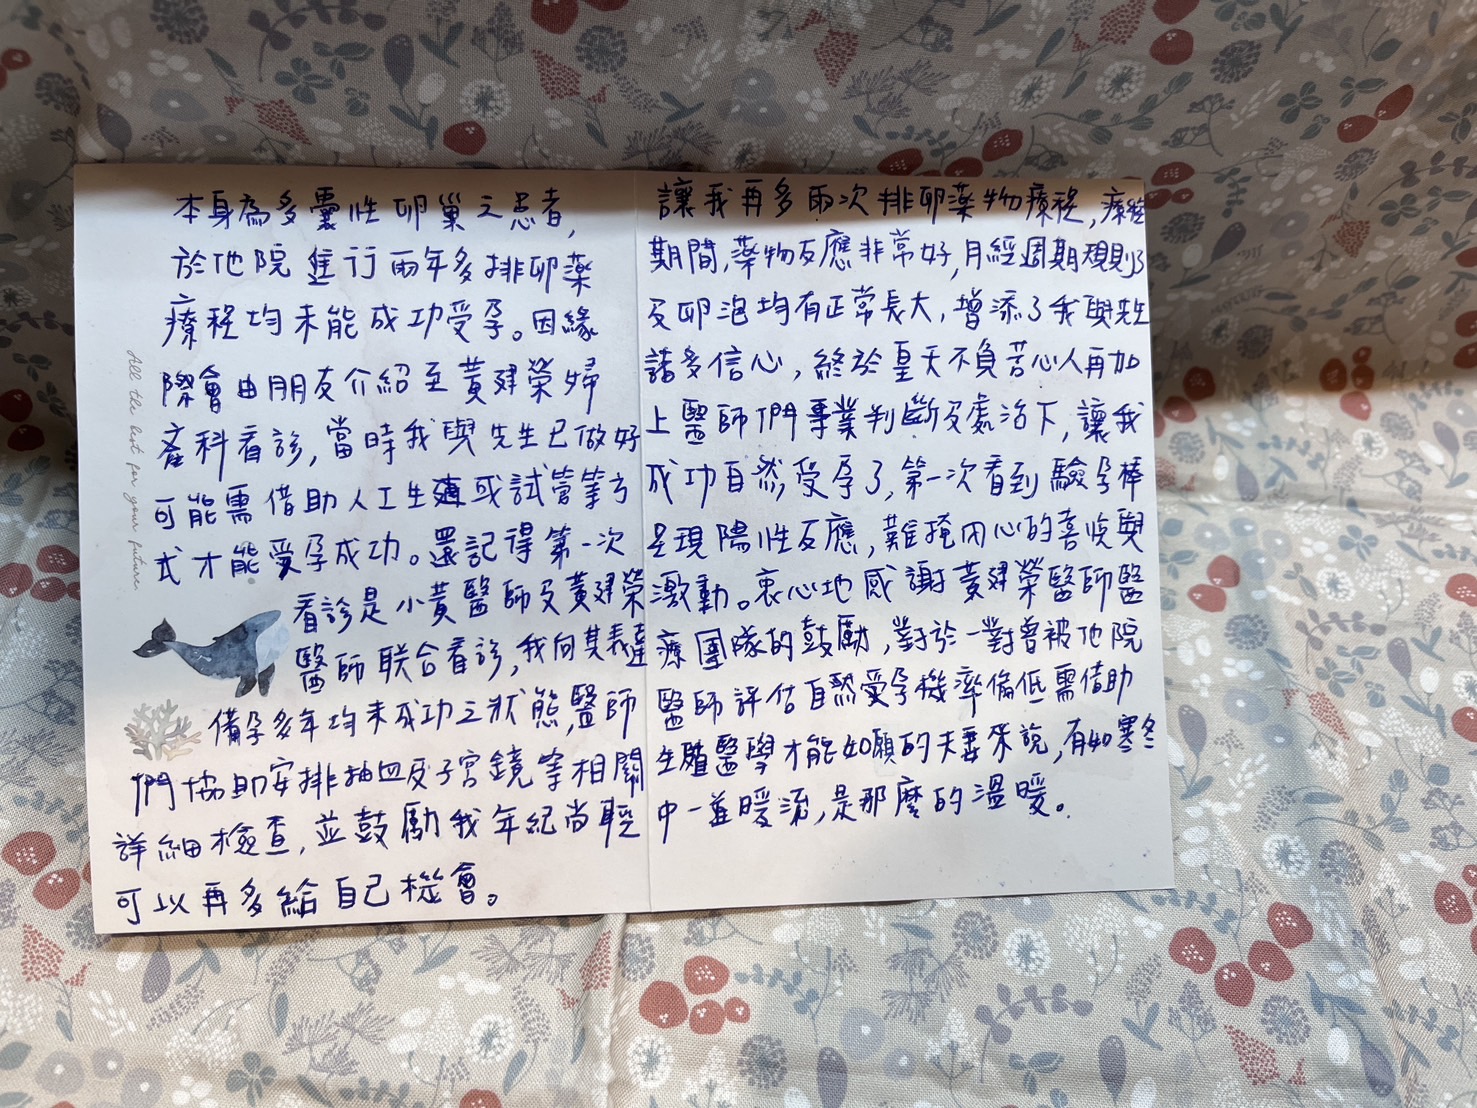 本身為多囊性卵巢之患者,
於他院進行兩年多排卵藥
療程均未能成功受孕。因緣
際會由朋友介紹至黃建榮婦
產科看診,當時我與先生已做好
可能需借助人工生殖或試管等方
式才能受孕成功。還記得第一次
看診是小黃醫師及黃建榮
醫師联合看診,我向其表達
備孕多年均未成功之狀態,醫師
們協助安排抽血及子宮鏡等相關
詳細檢查,並鼓勵我年紀尚輕
可以再多給自己機會。
All the best for your future
讓我再多兩次排卵藥物療程,療程
期間,藥物反應非常好,月經週期規則
及卵泡均有正常長大,增添了我與先生
諸多信心,終於皇天不負苦心人再加
上醫師們專業判斷及處治下,讓我
成功自然受孕了,第一次看到驗孕棒
呈現陽性反應,難掩內心的喜悅與
激動。衷心地感謝黃建榮醫師醫
療團隊的鼓勵,對於一對曾被他院
醫師評估自然受孕機率偏低需借助
生殖醫學才能如願的夫妻來說,有如寒冬
中一道暖流,是那麼的溫暖。